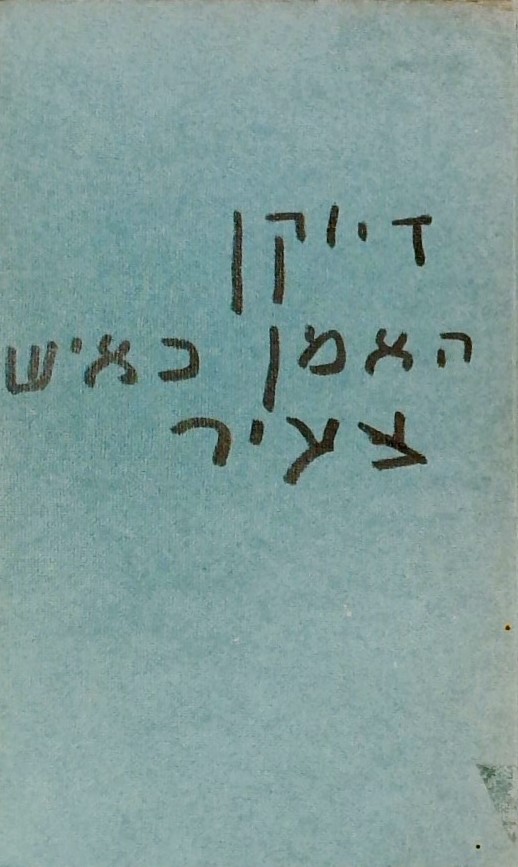 דיוקן
האמן כאיש
צעיר